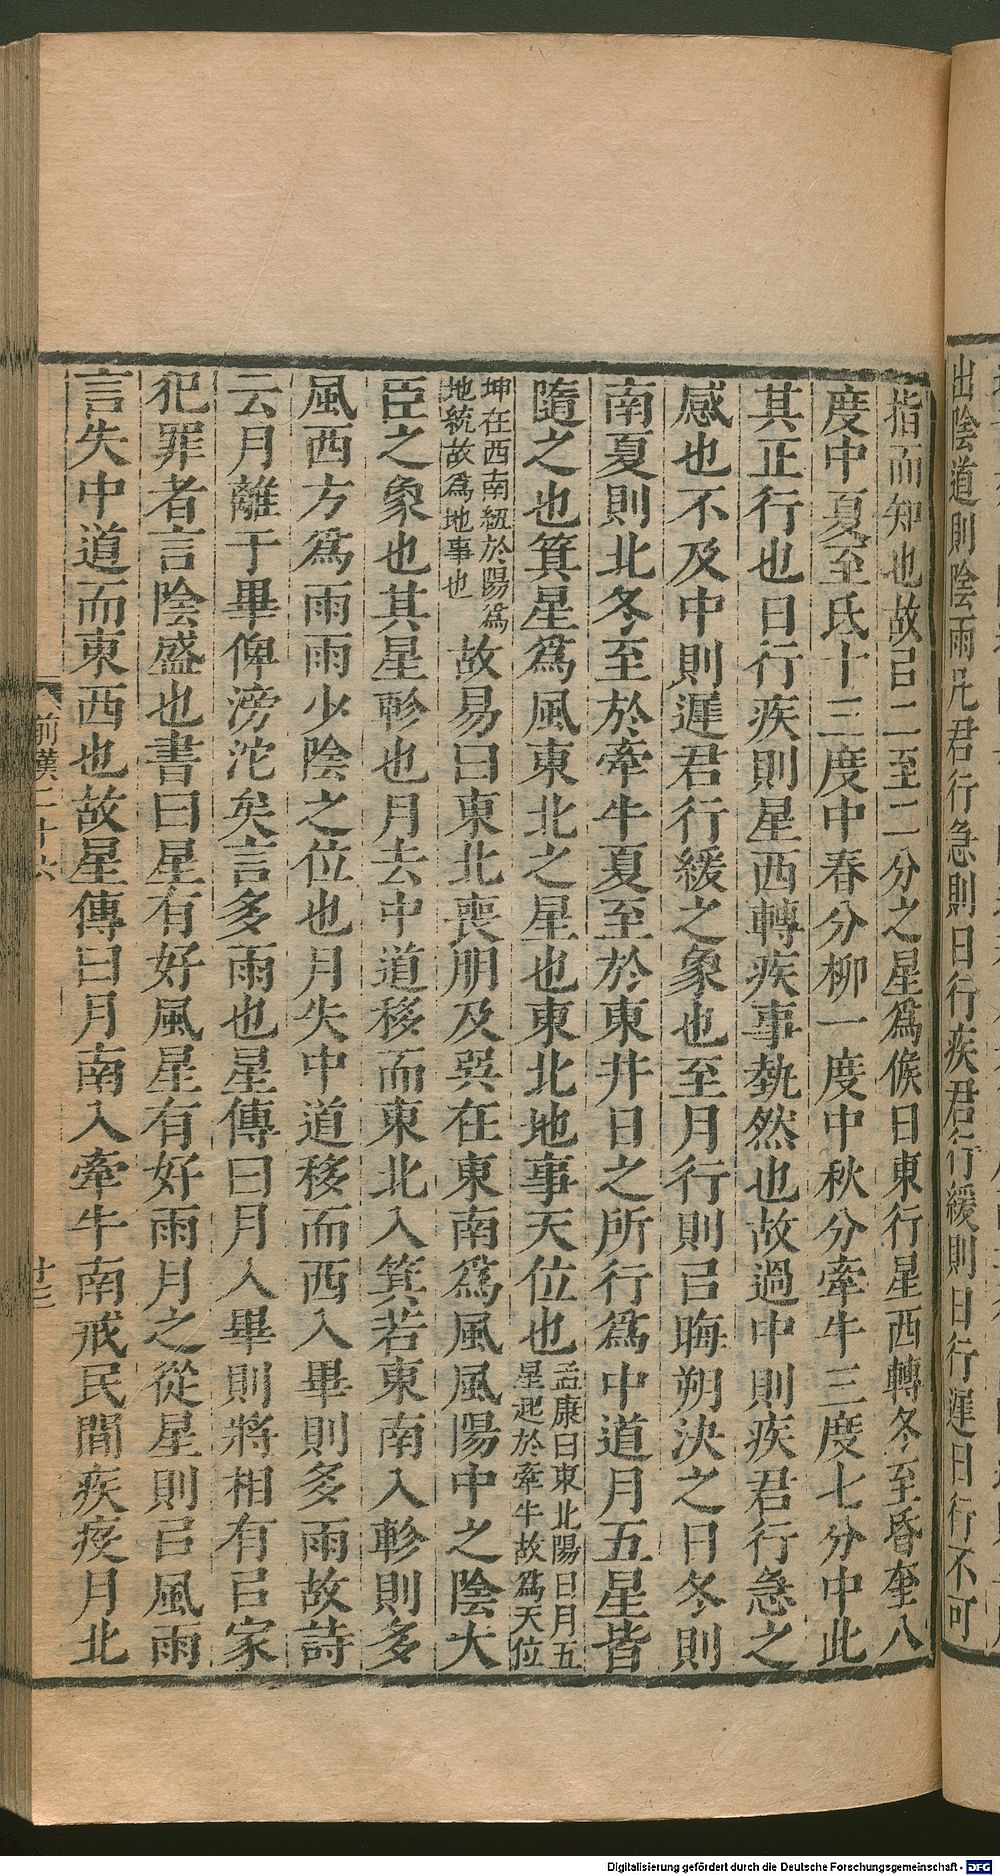 出陰道則陰雨凡君行急則日行疾君行緩則日行遲日行不可
指而知也故㠯二至二分之星爲候日東行星西轉冬至昏奎八
度中夏至氐十三度中春分柳一度中秋分牽牛三度七分中此
其正行也日行疾則星西轉疾事埶然也故過中則疾君行急之
感也不及中則遲君行緩之象也至月行則㠯晦朔決之日冬則
南夏則北冬至於牽牛夏至於東井日之所行爲中道月五星皆
隨之也箕星爲風東北之星也東北地事天位也孟康曰東北陽日月五
星起於牽牛故爲天位
坤在西南紐於陽爲
地統故爲地事也故易曰東北喪朋及巽在東南爲風風陽中之陰大
臣之象也其星軫也月去中道移而東北入箕若東南入軫則多
風西方爲雨雨少陰之位也月失中道移而西入畢則多雨故詩
云月離于畢俾滂沱矣言多雨也星傳曰月入畢則將相有㠯家
犯罪者言陰盛也書曰星有好風星有好雨月之從星則㠯風雨
言失中道而東西也故星傳曰月南入牽牛南戒民間疾疫月北
前漢二十六
廿三
Digitalisierung gefördert durch die Deutsche Forschungsgemeinschaft - DFG